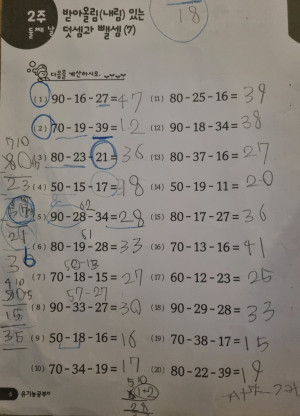 18
2주
둘째 날
받아올림(내림) 있는
덧셈과 뺄셈(7)
다음을 계산하시오.
(1) 90-16-27=47
(11) 80-25-16=39
(2) 70-19-39=12
(12) 90-18-34=38
(3) 80-23-21=36
(13) 80-37-16=27
(4) 50-15-17=18
(14) 50-19-11=20
(5) 90-28-34=28
(15) 80-17-27=36
(6) 80-19-28=33
(16) 70-13-16=41
(7) 70-18-15=27
(17) 60-12-23=25
(8) 90-33-27=30
(18) 90-29-28=33
(9) 50-18-16=16
(19) 70-38-17=15
(10) 70-34-19=17
(20) 80-22-39=19
6 유기농공부